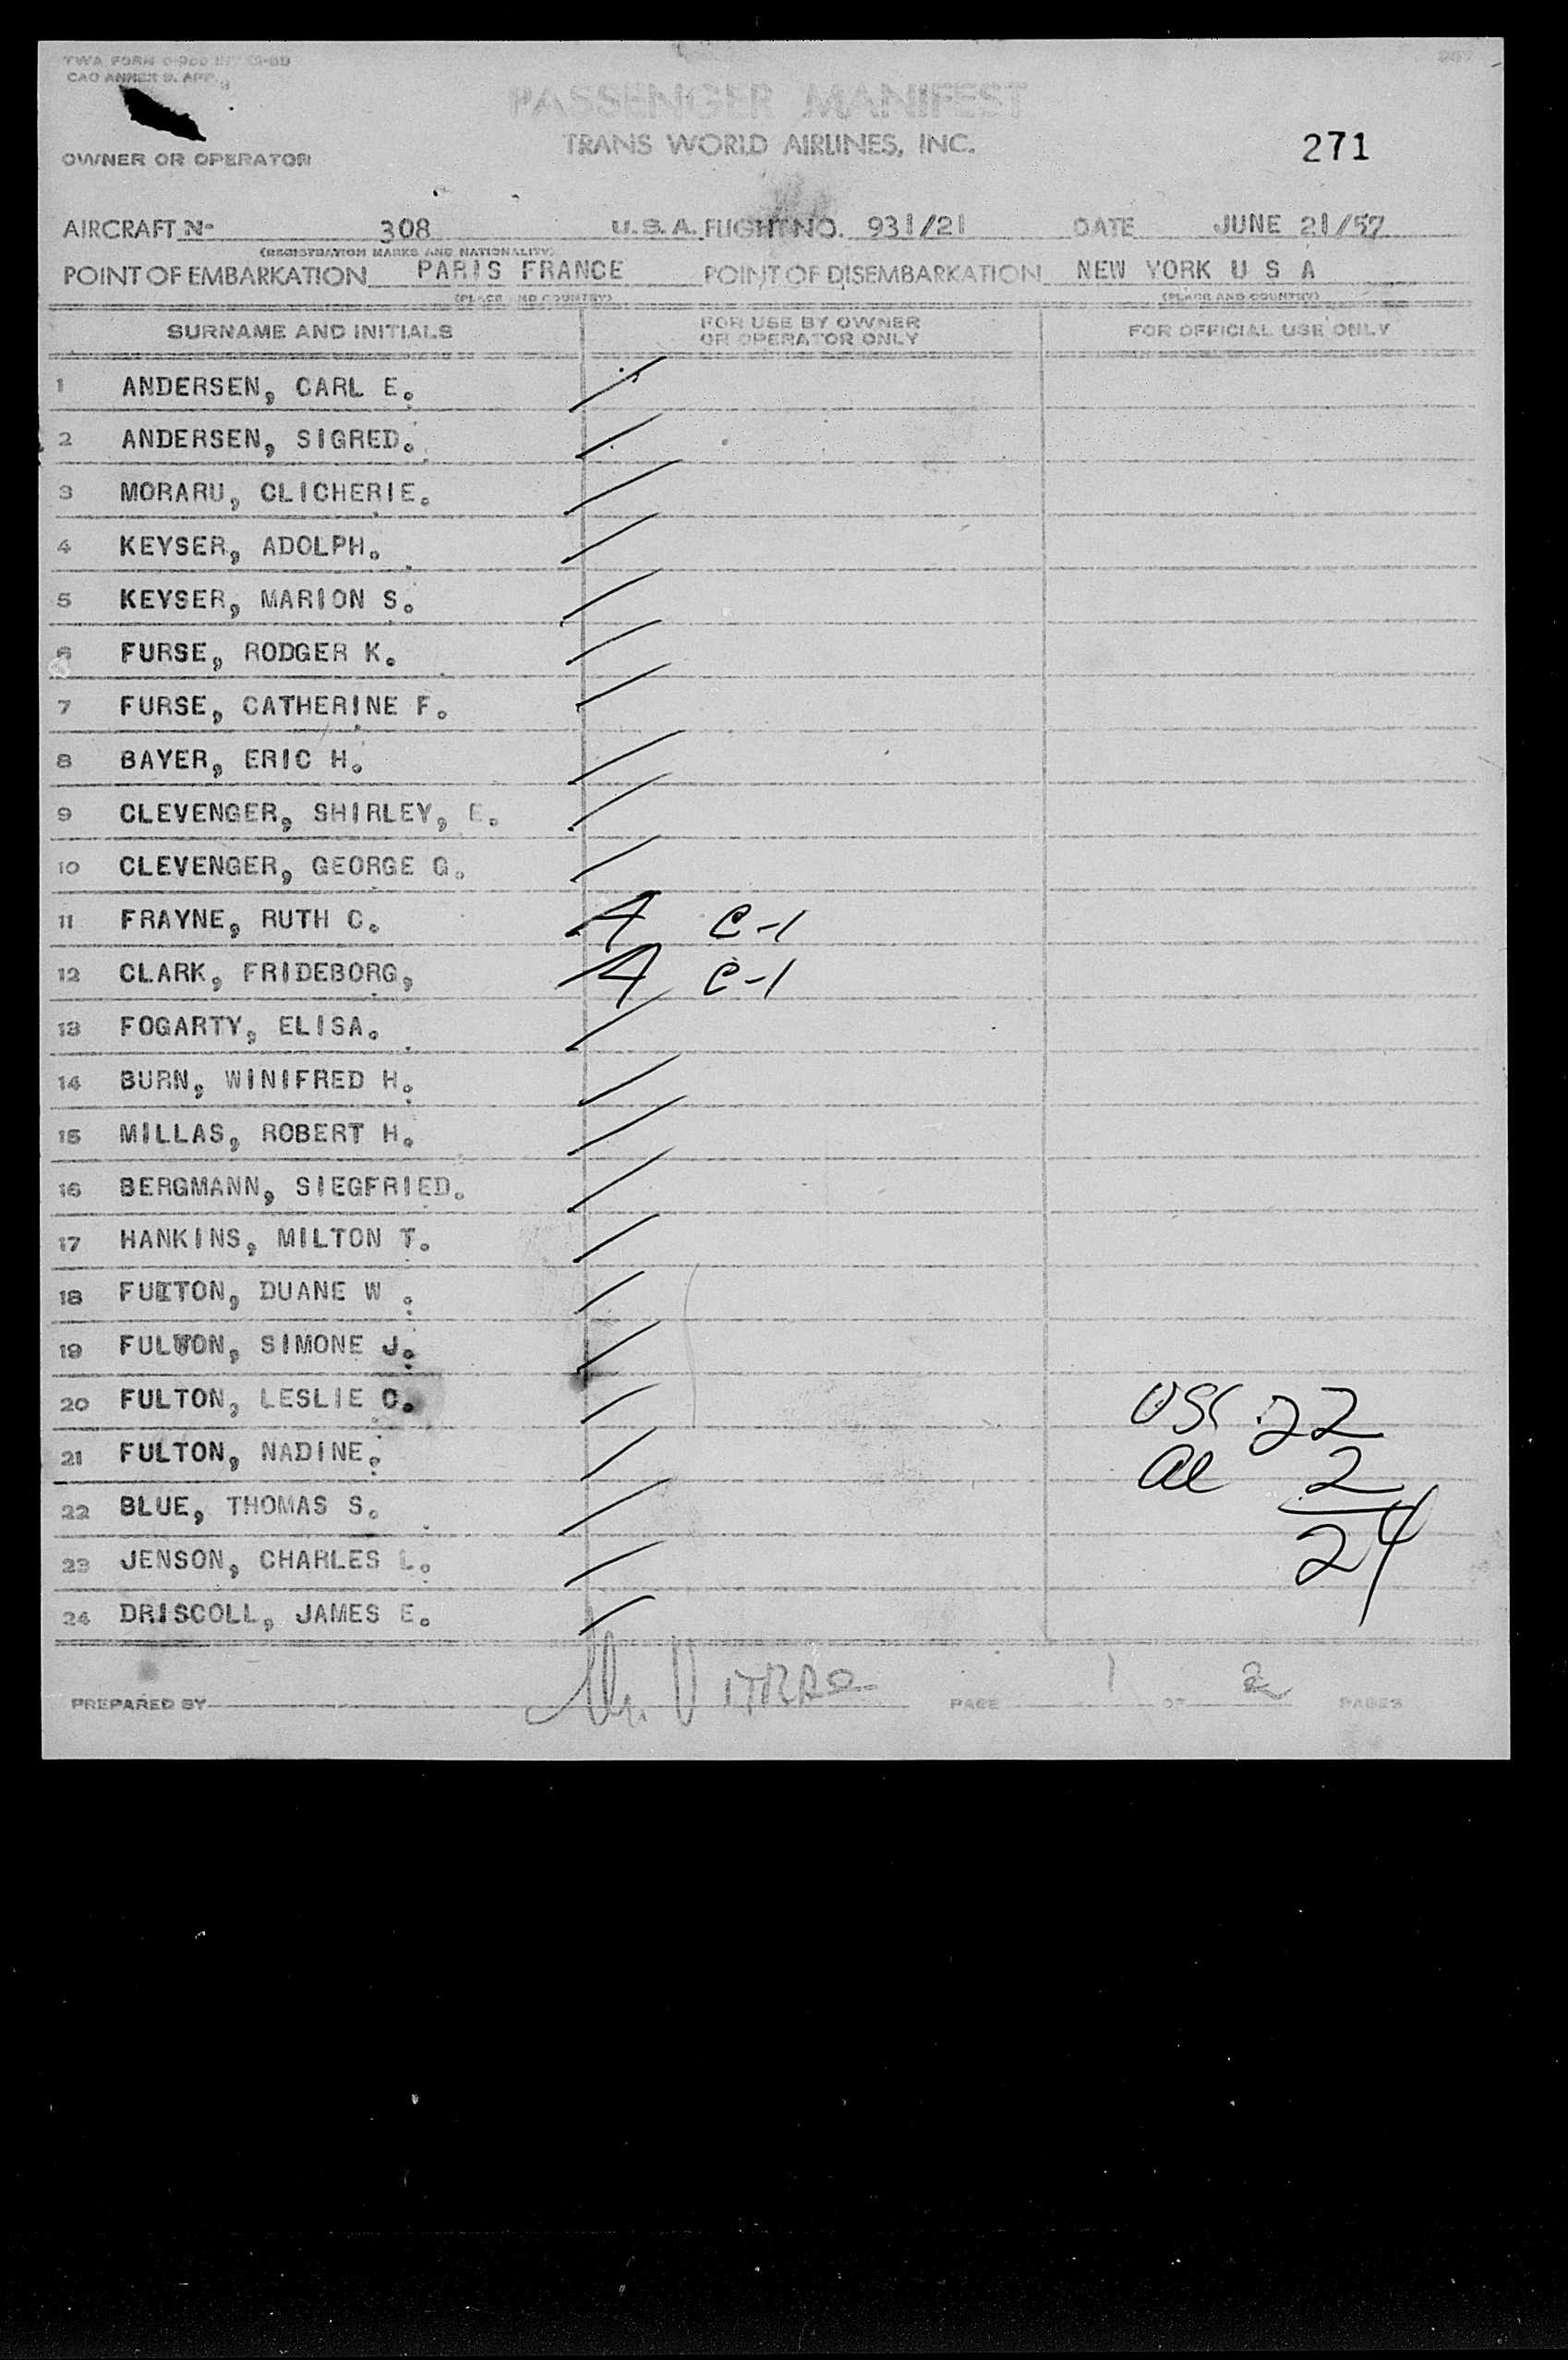 TWA FORM
CAO ANNEX 9. APP.
PASSENGER MANIFEST
TRANS WORLD AIRLINES, INC.
271
OWNER OR OPERATOR
AIRCRAFT No 308 U.S.A. FLIGHT NO. 931/21 DATE JUNE 21/57
(REGISTRATION MARKS AND NATIONALITY)
POINT OF EMBARKATION PARIS FRANCE POINT OF DISEMBARKATION NEW YORK U S A
(PLACE AND COUNTRY) (PLACE AND COUNTRY)
SURNAME AND INITIALS FOR USE BY OWNER OR OPERATOR ONLY FOR OFFICIAL USE ONLY
1 ANDERSEN, CARL E.
2 ANDERSEN, SIGRED.
3 MORARU, CLICHERIE.
4 KEYSER, ADOLPH.
5 KEYSER, MARION S.
6 FURSE, RODGER K.
7 FURSE, CATHERINE F.
8 BAYER, ERIC H.
9 CLEVENGER, SHIRLEY, E.
10 CLEVENGER, GEORGE G.
11 FRAYNE, RUTH C. A C-1
12 CLARK, FRIDEBORG, A C-1
13 FOGARTY, ELISA.
14 BURN, WINIFRED H.
15 MILLAS, ROBERT H.
16 BERGMANN, SIEGFRIED.
17 HANKINS, MILTON T.
18 FULTON, DUANE W.
19 FULTON, SIMONE J.
20 FULTON, LESLIE C. USC 22
21 FULTON, NADINE. al 2
22 BLUE, THOMAS S.
23 JENSON, CHARLES L. 24
24 DRISCOLL, JAMES E.
PREPARED BY PAGE 1 OF 2 PAGES